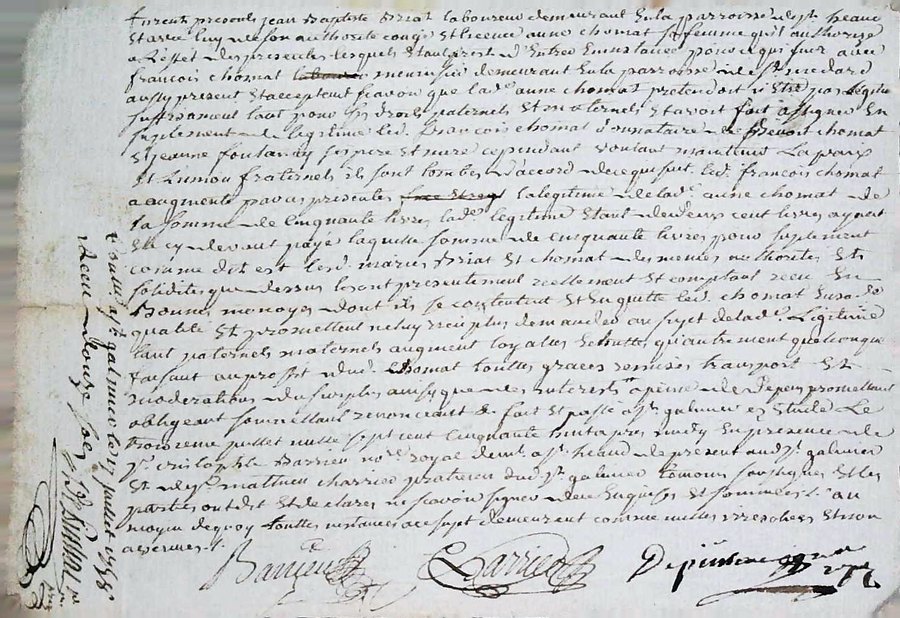 furent presents jean Baptiste Briat laboureur demeurant en la parroisse de st heand
et avec luy de son authorite congé et licence anne chomat sa femme qu'il authorise
a l'effet des presentes lesquels etant prest d'entrer en instance pour ce qui suit avec
francois chomat menuisier demeurant en la parroisse de st medard
aussy present et acceptent scavoir que lade anne chomat pretendoit n'etre pas legitimée
suffisament tant pour ses droits paternels et maternels et avoit fait assigner en
suplement de legitime led. francois chomat donnataire de Benoit chomat
et jeanne fontanay ses pere et mere cependant voulant maintenir la paix
et l'union fraternels ils sont tombes d'accord de ce qui suit. led. francois chomat
a augmenté par ces presentes la legitime de lade anne chomat de
la somme de cinquante livres lade legitime etant de deux cent livres ayant
eté cy devant payé laquelle somme de cinquante livres pour suplement
comme dit est lesd. maries Briat et chomat des memes authorites et
solidites que dessus l'ont presentement reellement et comptant receu en
bonnes monoyes dont ils se contentent et en quitte led. chomat en sade
qualite et promettent ne luy rien plus demander au sujet de lade legitime
tant paternels maternels augment loyalles echutte qu'autrement quelconque
faisant au proffit dud. chomat touttes graces remises transport et
moderations du surplus aussy que des interests a peine de depens promettant
obligeant soumettant renonceant &c fait et passé a st galmier es etude le
troizieme juillet mille sept cent cinquante huit apres midy en presence de
sr cristophle Barrieu nore royal demt a st heand de present aud. st galmier
et de sr mathieu charrier praticien dud. st galmier temoins soussignes et les
parties ont dit et declares ne scavoir signer de ce enquises et sommées et au
moyen de quoy touttes instances a ce sujet demeurent comme nulles irresolues et non
avenues
Barrieu Charrier
Controllé a st galmier le 13 juillet 1758
Receu douze sols